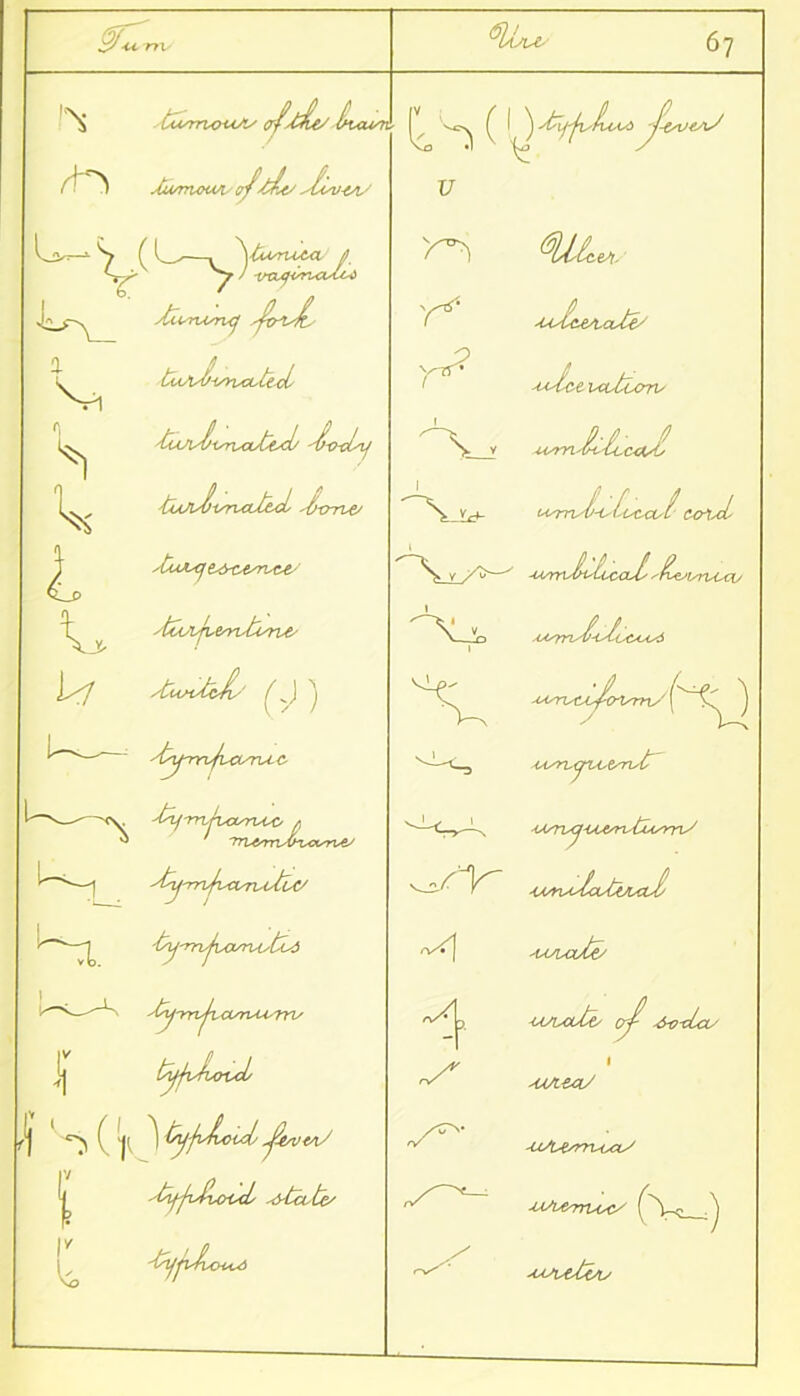 Tum
Ure 67
tumour of the brain
tumour of the liver
tunica
vaginalis
tuning fork
turbinated
turbinated body
turbinated bone
turgescence
turpentine
twitch
tympanic
tympanic
membrane
tympanitic
tympanitis
tympanum
typhoid
typhoid fever
typhoid state
typhous
typhus fever
U
Ulcer
ulcerate
ulceration
umbilical
umbilical cord
umbilical hernia
umbilicus
unciform
unguent
unguentum
unilateral
urate
urate of soda
urea
uremia
uremic
ureter